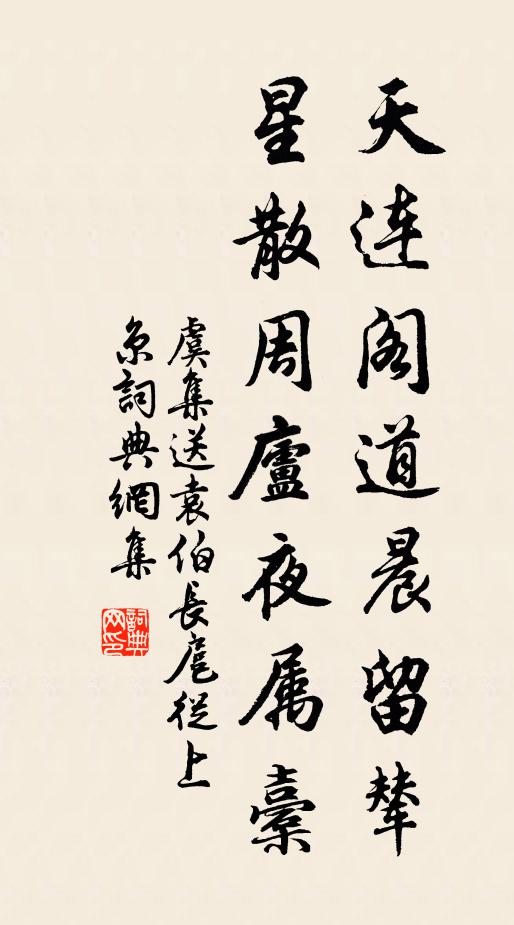 天连阁道晨留辇
星散周廬夜属櫜
虞集送袁伯長扈從上
京詞典網集
詞典
网印